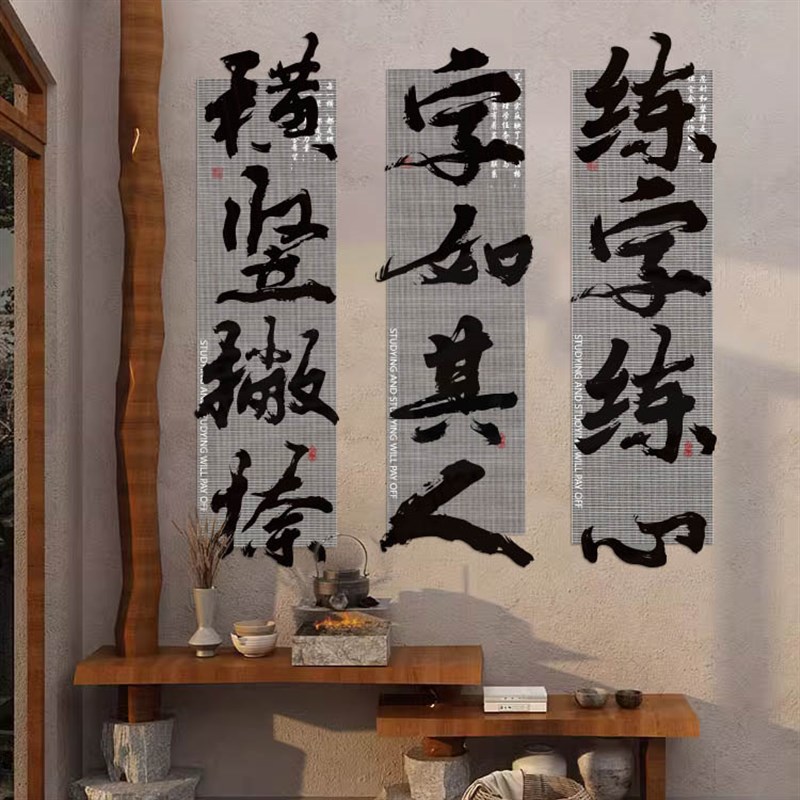 练字练心
STUDYING AND STUDYING WILL PAY OFF
字如其人
STUDYING AND STUDYING WILL PAY OFF
横竖撇捺
STUDYING AND STUDYING WILL PAY OFF